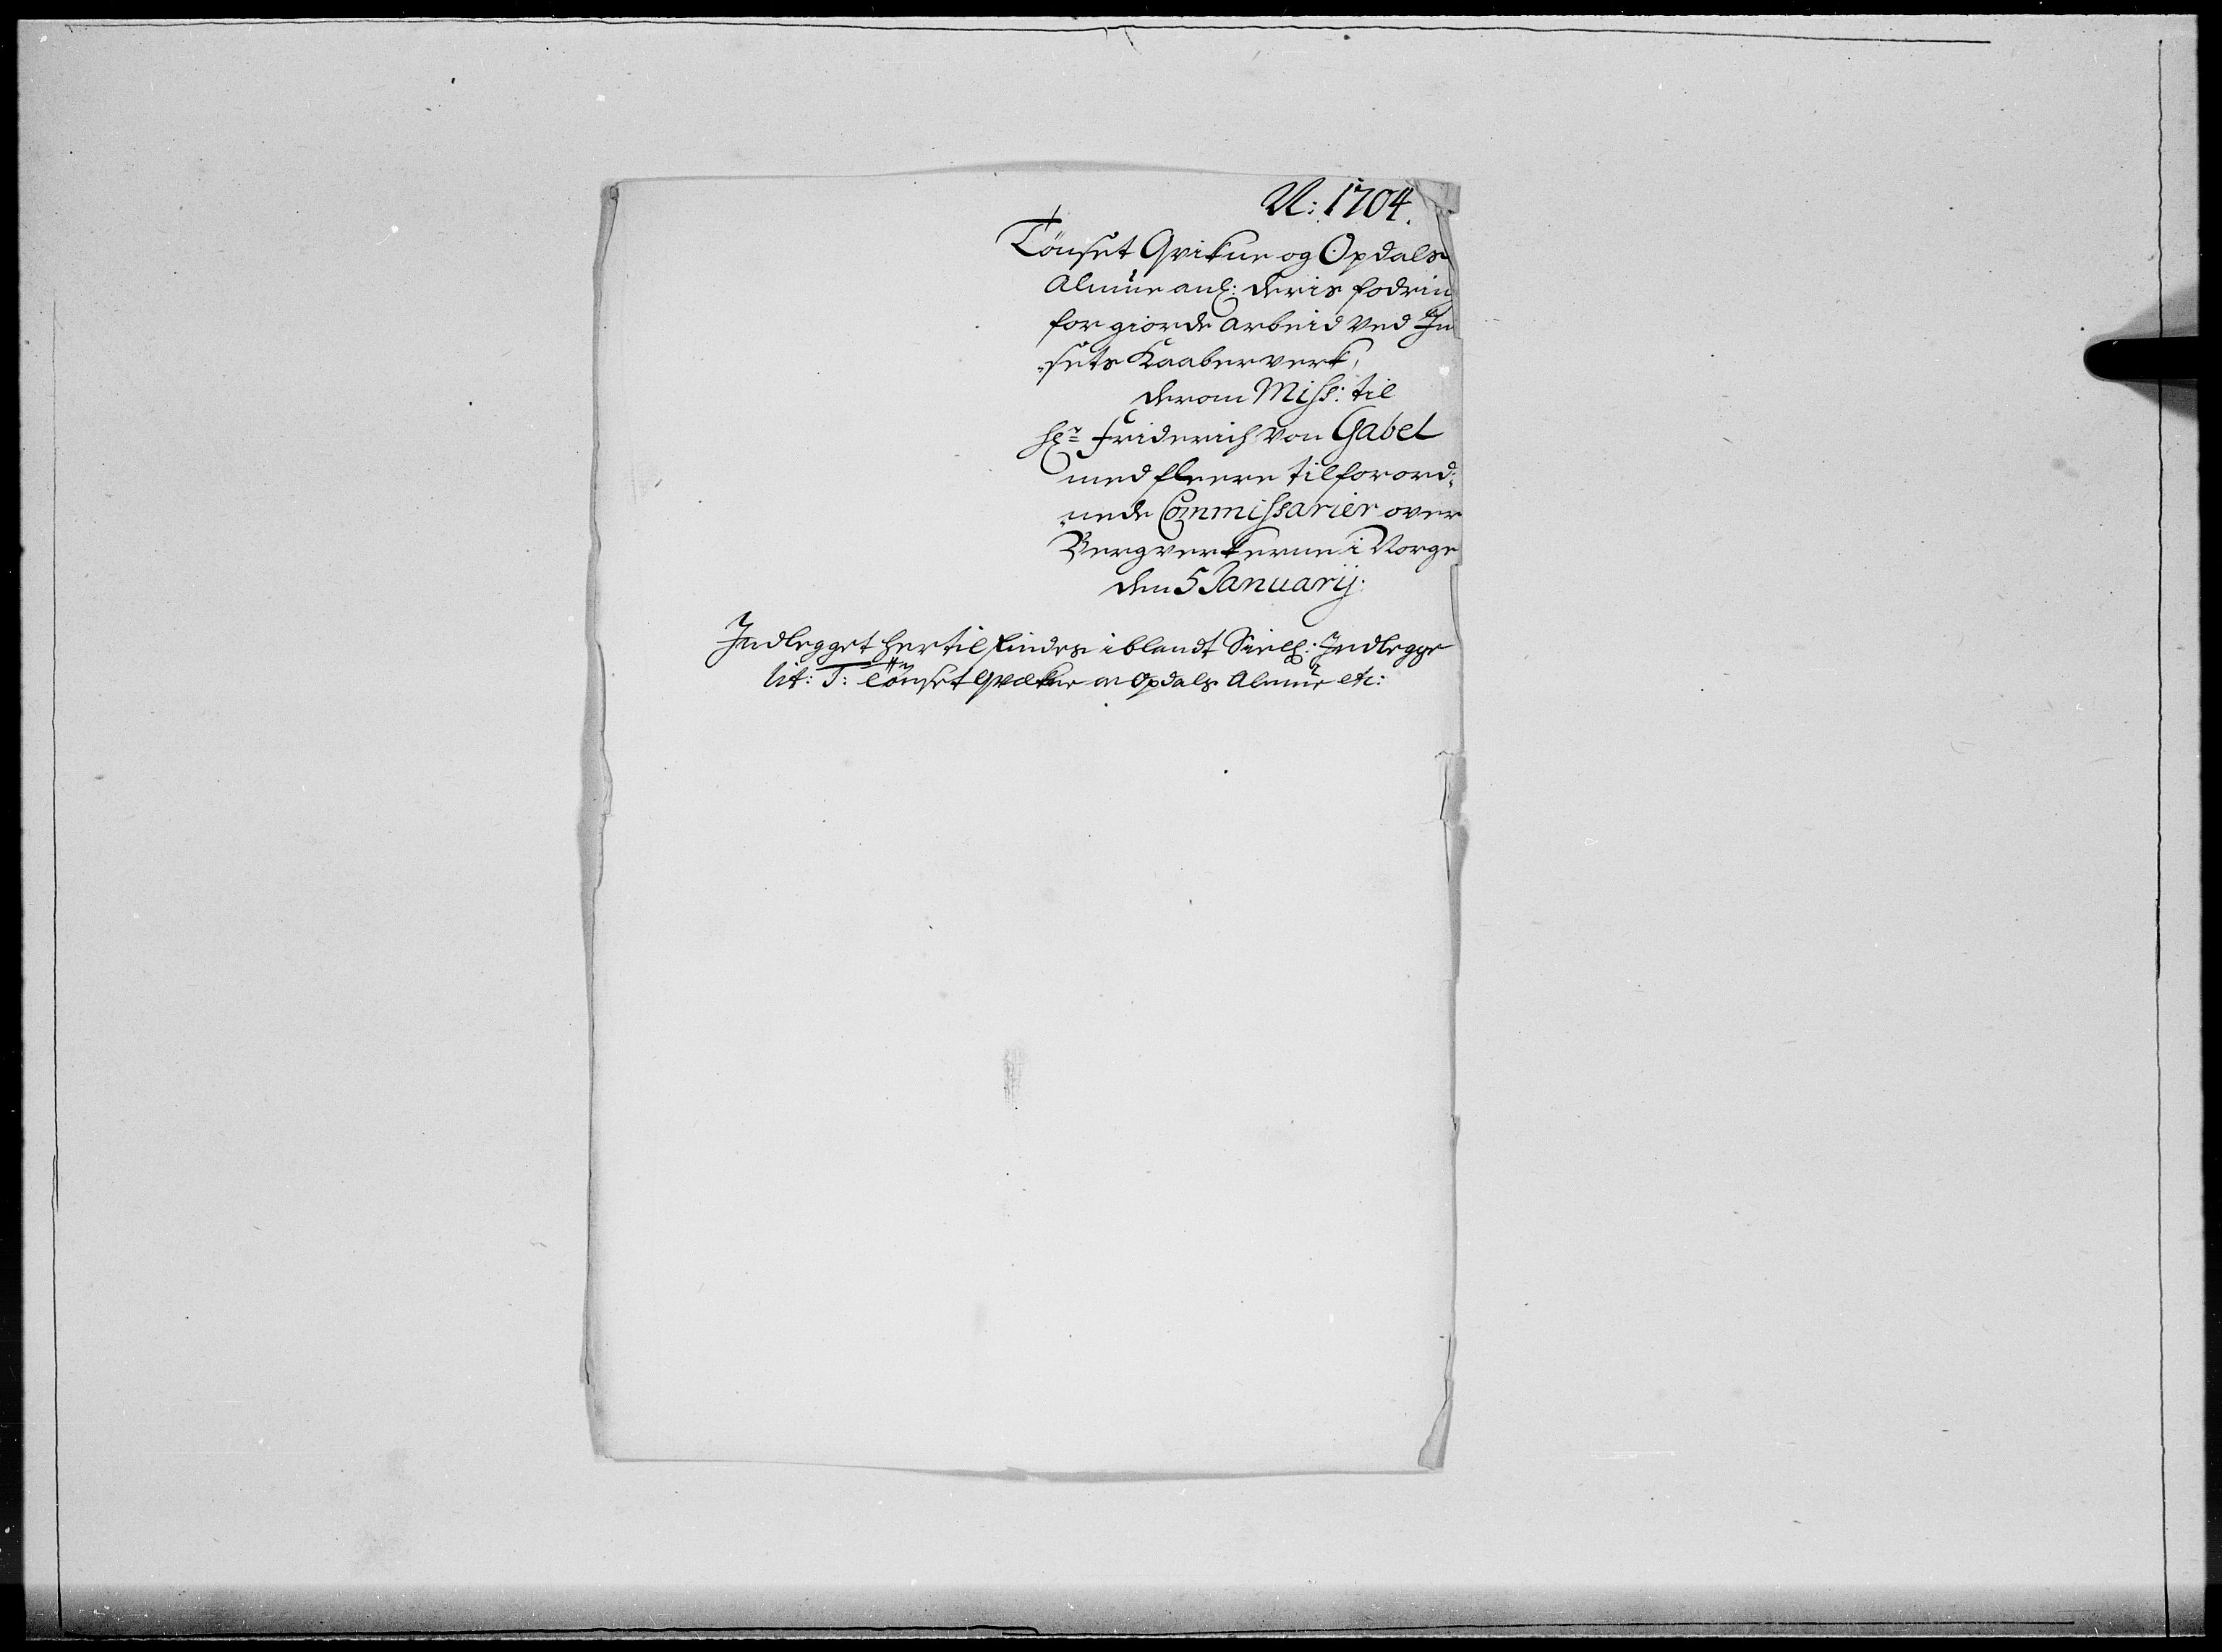 N: 1704.
Tönset Qvikne og Opdals
Almue anl: deris fodring
for giorde arbeid ved In
-sets Kaaberverk,
derom Miss: til
Hr. Friderich von Gabel
med fleere tilforord-
-nede Commissarier over
Bergverkerne i Norge
den 5 Januarij:
Indlegget hertil findes iblandt Siell: Indlegge
Lit: T: Tönset Qvikne og Opdals Almue etc: